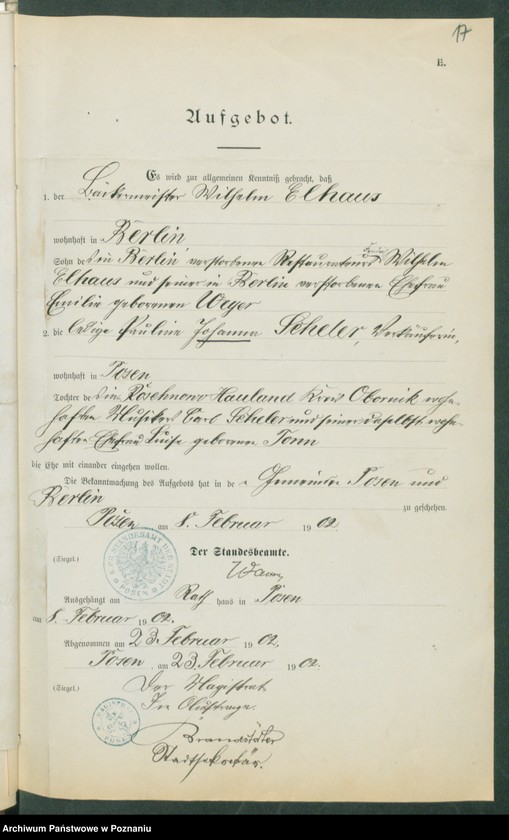 17
E.
Aufgebot.
Es wird zur allgemeinen Kenntniß gebracht, daß
1. der Bäckermeister Wilhelm Elhaus
wohnhaft in Berlin
Sohn des in Berlin verstorbenen Restaurateurs Wilhelm
Elhaus und seiner in Berlin verstorbenen Ehefrau
Emilie geborenen Weyer
2. die ledige Pauline Johanna Scheler, Verkäuferin,
wohnhaft in Posen
Tochter des in Hauland Kreis Obornik wohn-
haften Musikers Carl Scheler und seiner daselbst wohn-
haften Ehefrau Luise geborenen Tonn
die Ehe mit einander eingehen wollen.
Die Bekanntmachung des Aufgebots hat in den Gemeinden Posen und
Berlin zu geschehen.
Posen am 8. Februar 1902.
Der Standesbeamte.
(Siegel.)
Ausgehängt am Rathhaus in Posen
am 8. Februar 1902.
Abgenommen am 23. Februar 1902.
Posen, am 23. Februar 1902.
(Siegel.) Der Magistrat
Im Auftrage.
Stadtsekretär.
Archiwum Państwowe w Poznaniu